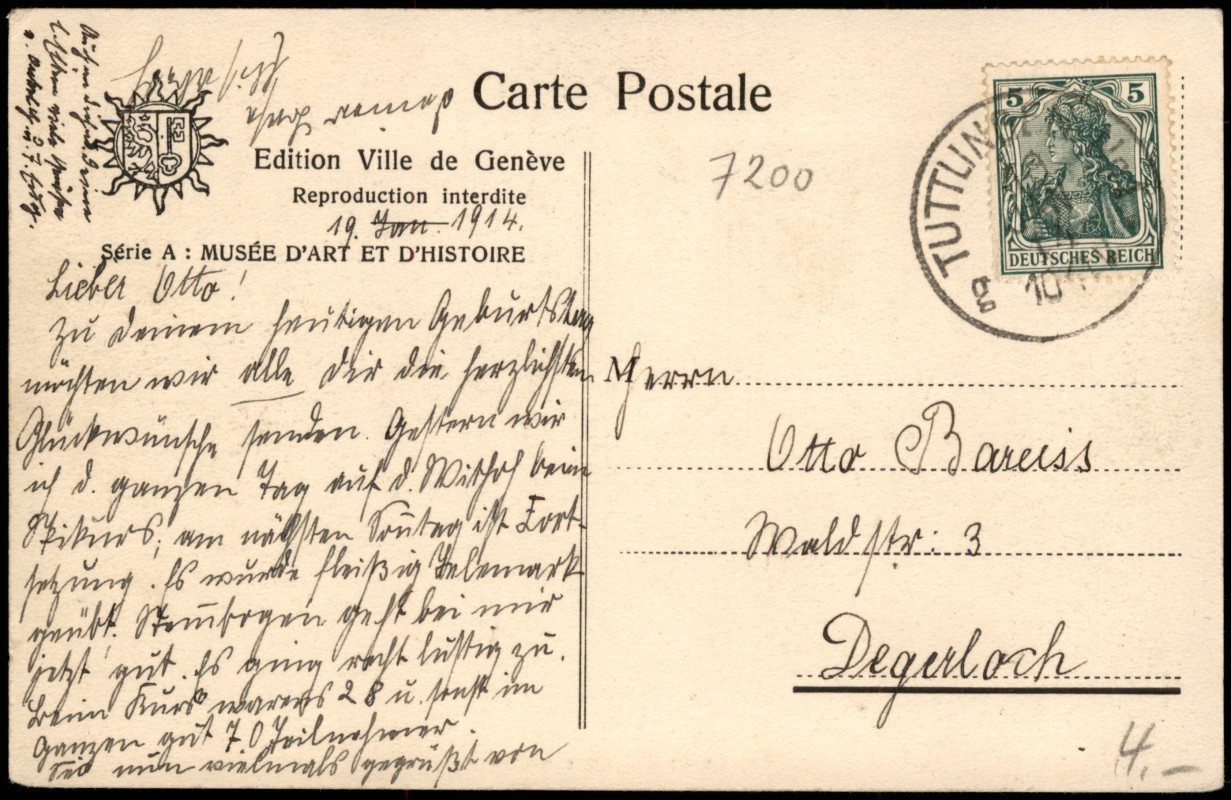 Carte Postale
Edition Ville de Genève
Reproduction interdite
19. Jan. 1914.
Série A : MUSÉE D'ART ET D'HISTOIRE
Lieber Otto!
Zu Deinem heutigen Geburtstag
möchten wir alle Dir die herzlichsten
Glückwünsche senden. Gestern
ich d. ganzen Tag auf d. Withoh beim
Skikurs, am nächsten Soñtag ist Fort-
setzung. Es wurde fleißig Telemark
geübt. Stem̄bogen geht bei mir
jetzt gut. Es ging recht lustig zu.
Beim Kurs warens 28 u. sonst im
ganzen gut 70 Teilnehmer.
Sei nun vielmals gegrüßt von
Deiner
7200
5 5
DEUTSCHES REICH
TUTTLIN
M
Herrn
Otto Bareiss
Waldstr: 3
Degerloch
4.-